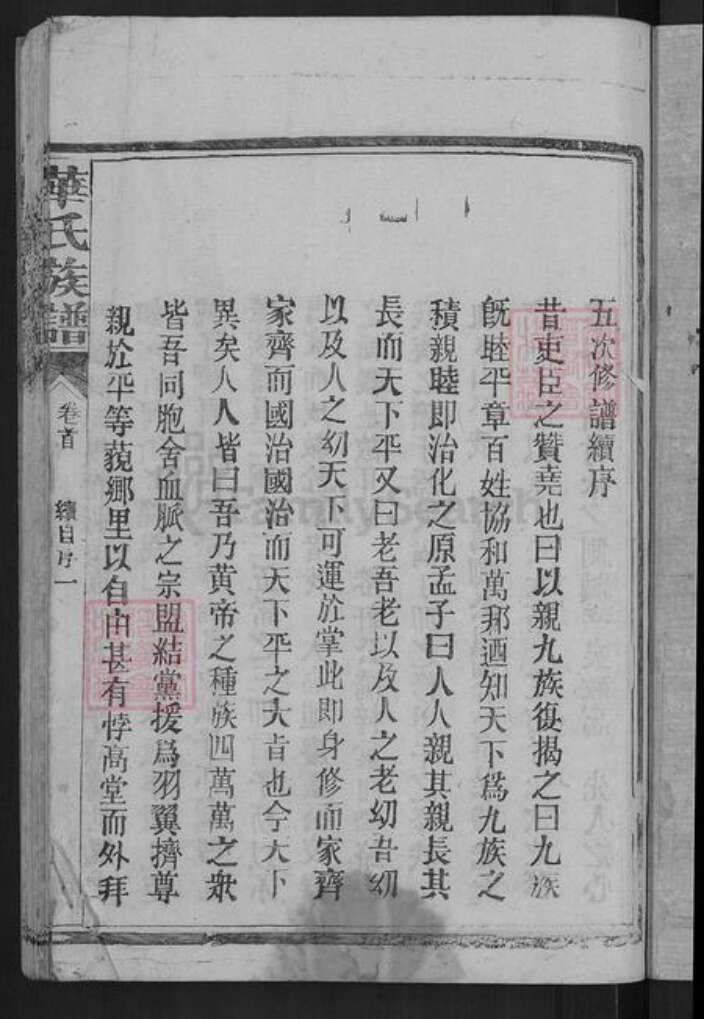 五次修譜續序
昔史臣之贊堯也曰以親九族復揭之曰九族
既睦平章百姓協和萬邦迺知天下爲九族之
積親睦即治化之原孟子曰人人親其親長其
長而天下平又曰老吾老以及人之老幼吾幼
以及人之幼天下可運於掌此即身修而家齊
家齊而國治國治而天下平之大旨也今天下
異矣人人皆曰吾乃黄帝之種族四萬萬之衆
皆吾同胞舍血脈之宗盟結黨援爲羽翼擠尊
親於平等藐鄉里以自由甚有悖高堂而外拜
華氏族譜
卷首
續序一